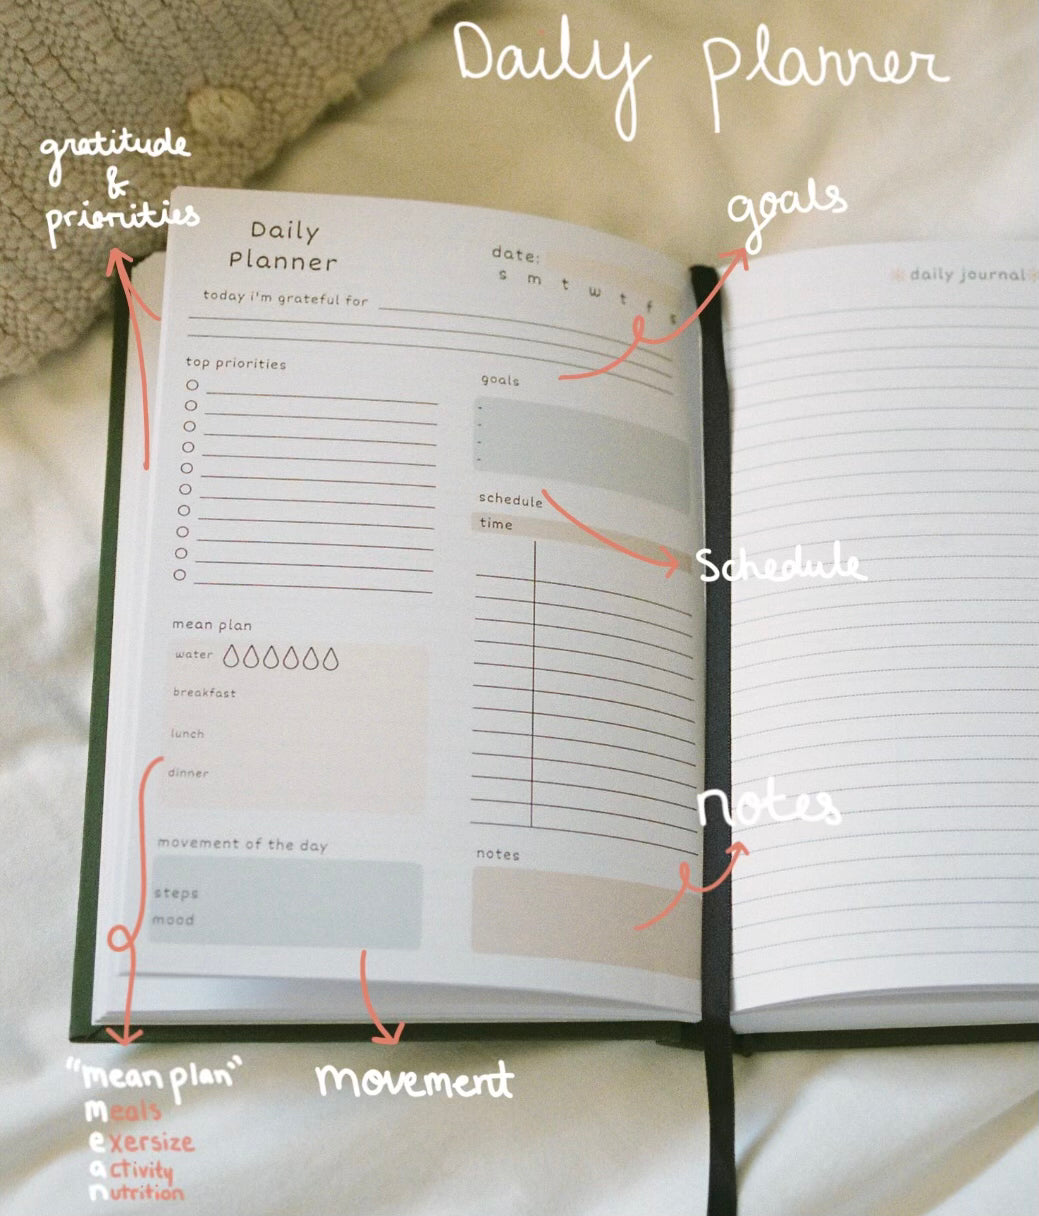 Daily planner
gratitude
&
priorities
goals
Daily
Planner
date:
s m t w t f s
today i'm grateful for
top priorities
goals
-
-
-
-
schedule
time
Schedule
mean plan
water
breakfast
lunch
dinner
movement of the day
steps
mood
notes
notes
✳ daily journal ✳
"mean plan"
meals
exersize
activity
nutrition
movement